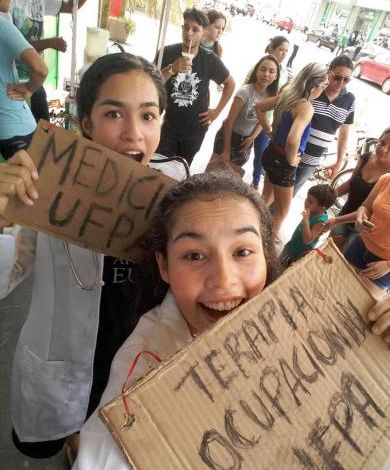 MEDICI
UFPA
TERAPIA
OCUPACIONAL
UFPA